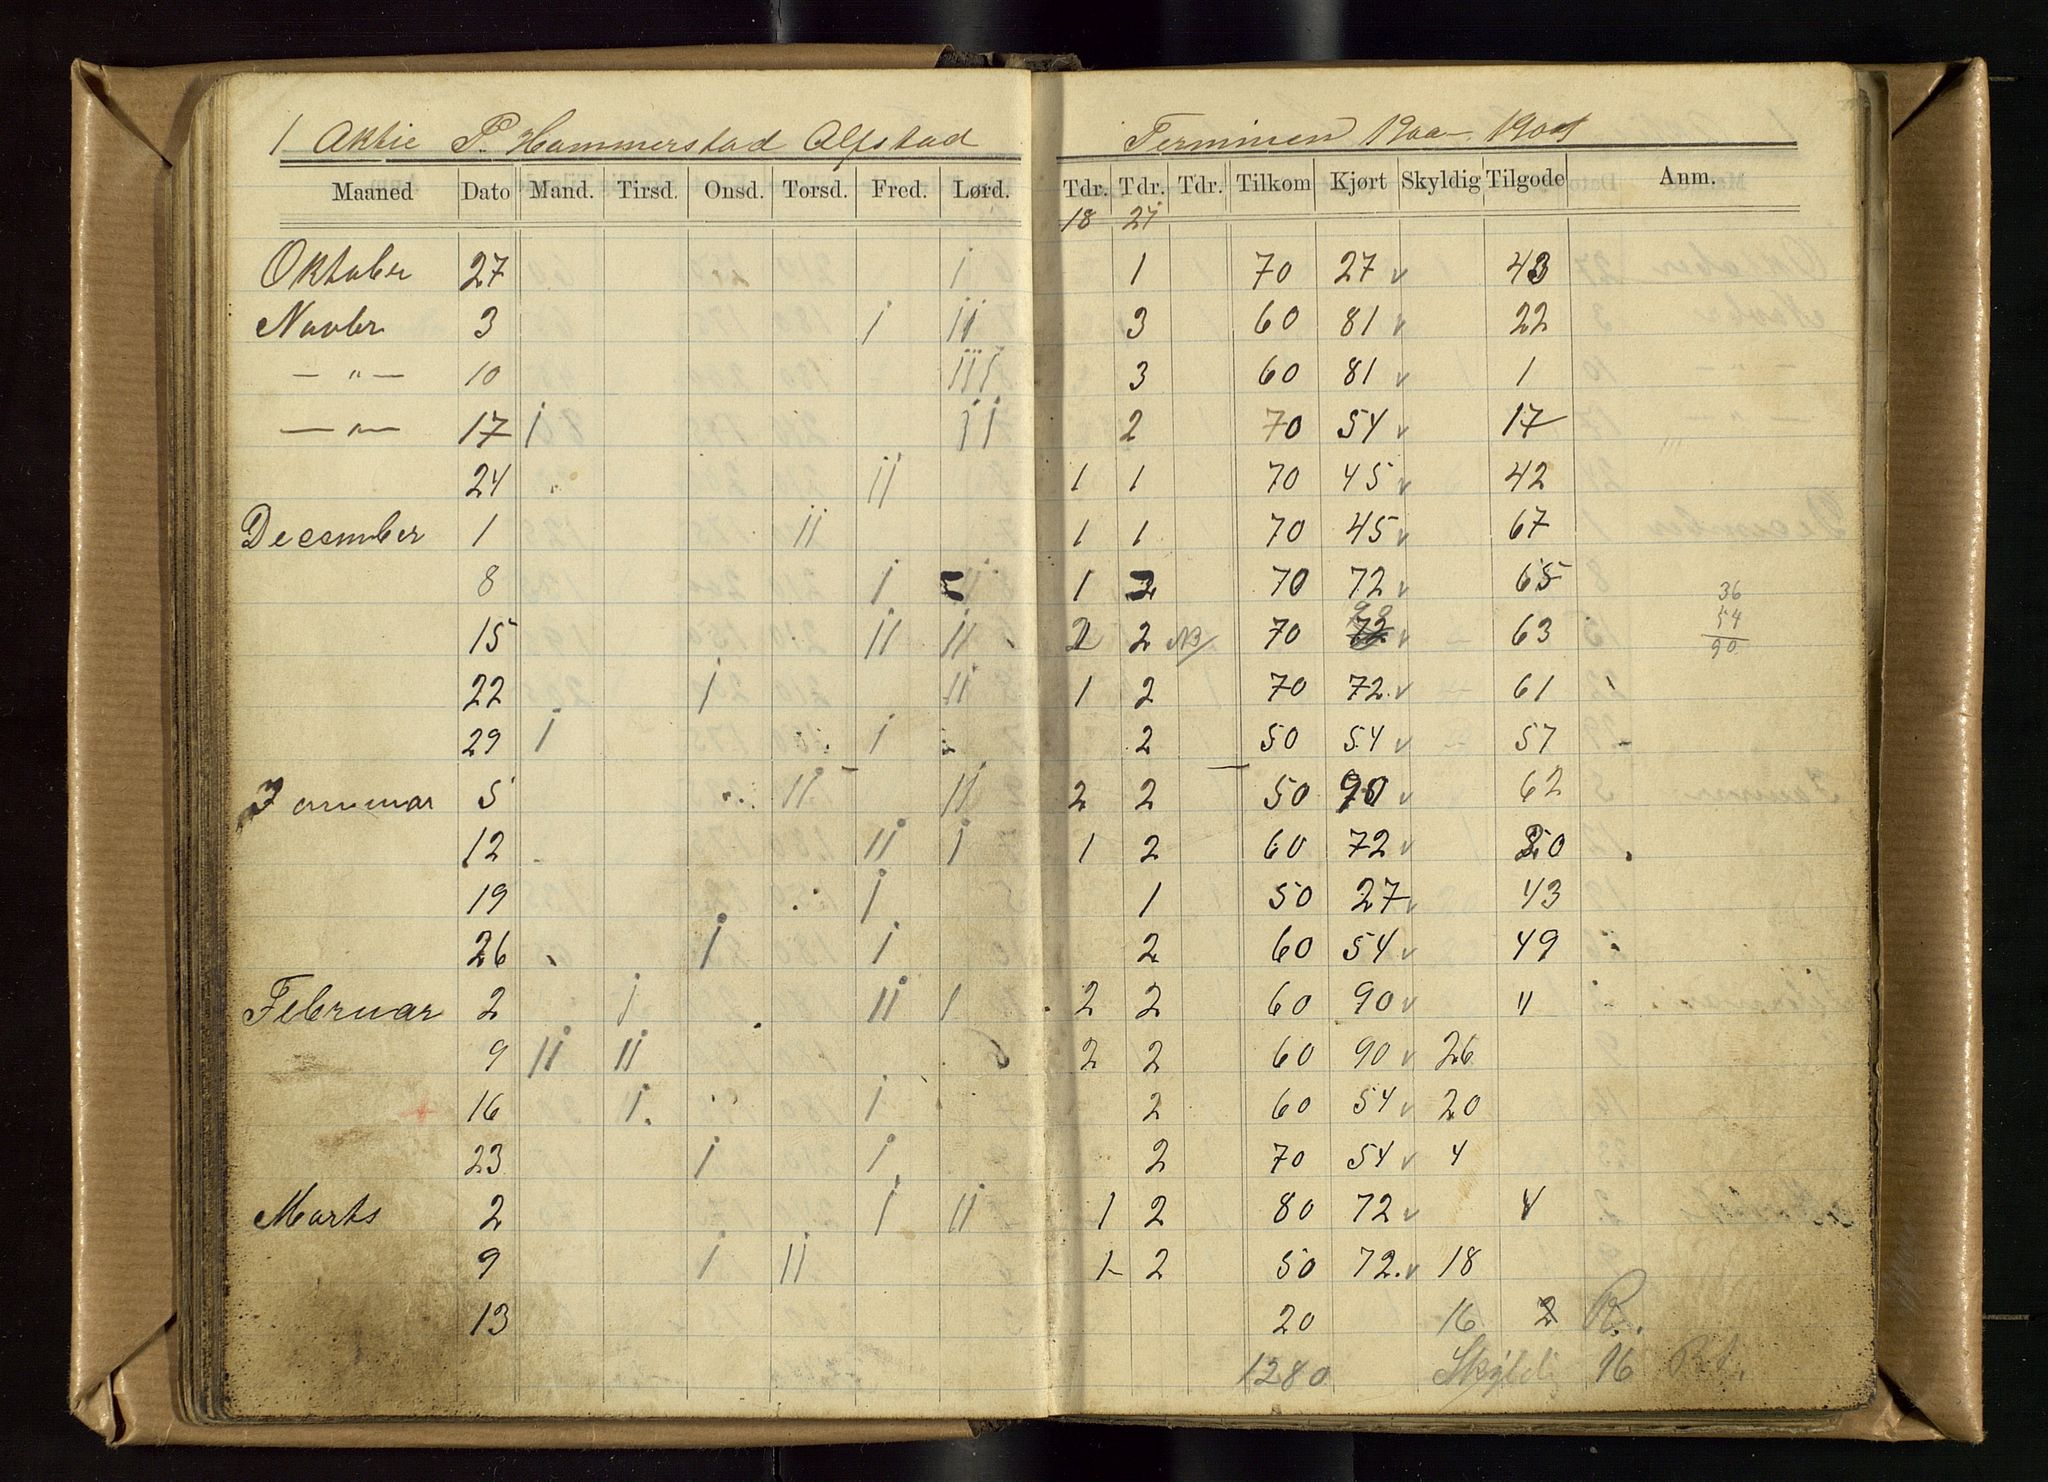 1 Aktie P. Hammerstad Alfstad Terminen 1900–1901
Maaned Dato Mand. Tirsd. Onsd. Torsd. Fred. Lørd. Tdr. Tdr. Tdr. Tilkom Kjørt Skyldig Tilgode Anm.
18 27
Oktober 27 | 1 70 27 v 43
Novbr 3 | || 3 60 81 v 22
— " — 10 ||| 3 60 81 v 1
— " — 17 | || 2 70 54 v 17
24 || 1 1 70 45 v 42
December 1 || 1 1 70 45 v 67
8 | || 1 2 70 72 v 65 36
15 || || 2 2 NB 70 90 v 63 54
90
22 | || 1 2 70 72 v 61
29 | | 2 50 54 v 57
Januar 5 || || 2 2 50 90 v 62
12 || | 1 2 60 72 v 20
19 | 1 50 27 v 43
26 | | 2 60 54 v 49
Februar 2 | || | 2 2 60 90 v 11
9 || || 2 2 60 90 v 26
16 | | 2 60 54 v 20
23 | | 2 70 54 v 4
Marts 2 | || 1 2 80 72 v 4
9 | || 1 2 50 72 v 18
13 20 16 2 R.
1280 Skyldig 16